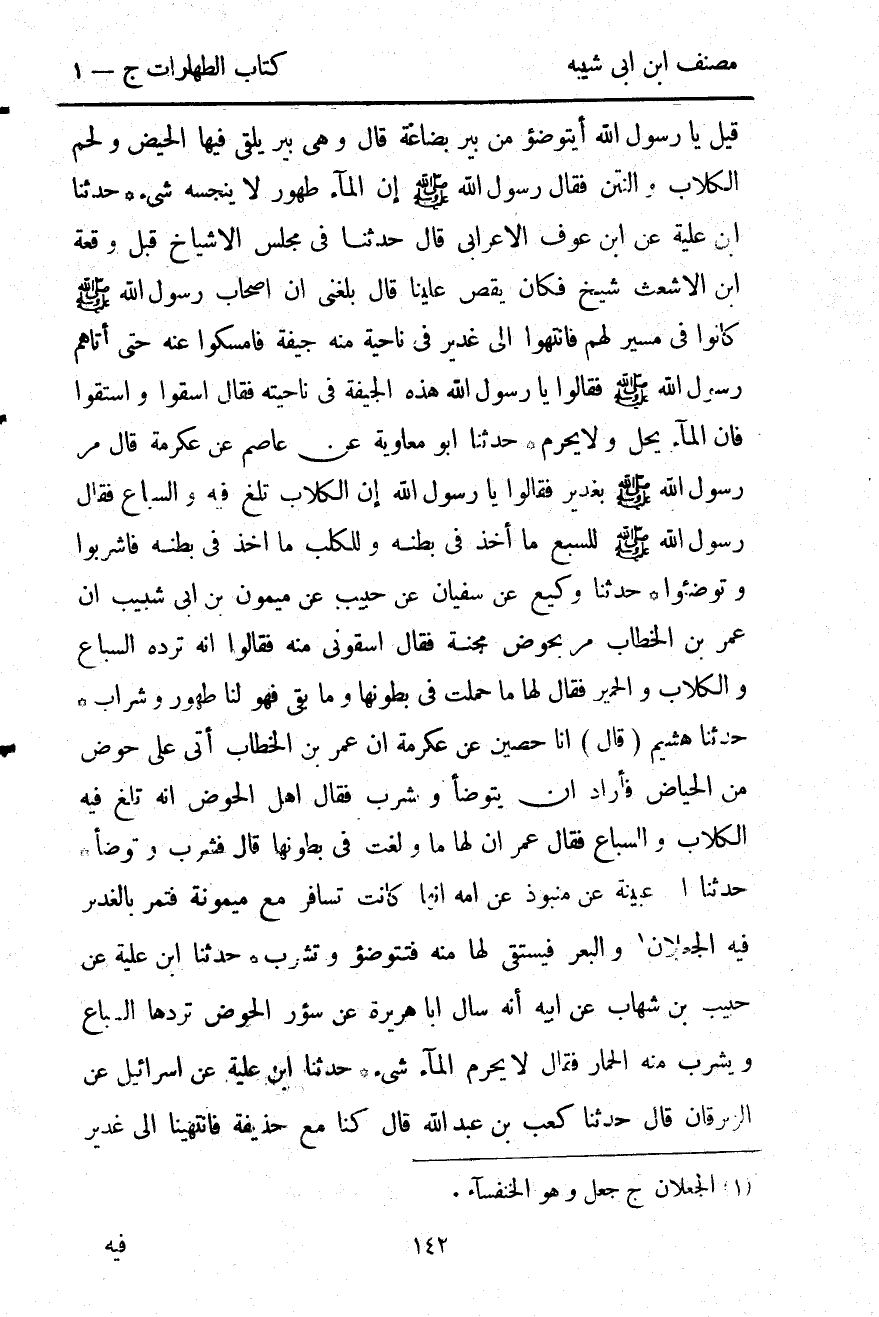 مصنف ابن ابى شيبه
كتاب الطهارات ج — ١
قيل يا رسول الله أيتوضؤ من بير بضاعة قال و هى بير يلقى فيها الحيض و لحم
الكلاب و النتن فقال رسول الله ﷺ إن المآء طهور لا ينجسه شىء * حدثنا
ابن علية عن ابن عوف الاعرابى قال حدثنا فى مجلس الاشياخ قبل وقعة
ابن الاشعث شيخ فكان يقص علينا قال بلغنى ان اصحاب رسول الله ﷺ
كانوا فى مسير لهم فانتهوا الى غدير فى ناحية منه جيفة فامسكوا عنه حتى أتاهم
رسول الله ﷺ فقالوا يا رسول الله هذه الجيفة فى ناحيته فقال اسقوا و استقوا
فان المآء يحل و لايحرم * حدثنا ابو معاوية عن عاصم عن عكرمة قال مر
رسول الله ﷺ بغدير فقالوا يا رسول الله إن الكلاب تلغ فيه و السباع فقال
رسول الله ﷺ للسبع ما أخذ فى بطنه و للكلب ما اخذ فى بطنه فاشربوا
و توضئوا * حدثنا وكيع عن سفيان عن حبيب عن ميمون بن ابى شبيب ان
عمر بن الخطاب مر بحوض مجنة فقال اسقونى منه فقالوا انه ترده السباع
و الكلاب و الحمير فقال لها ما حملت فى بطونها و ما بقى فهو لنا طهور و شراب *
حدثنا هشيم ( قال ) انا حصين عن عكرمة ان عمر بن الخطاب أتى على حوض
من الحياض فأراد ان يتوضأ و شرب فقال اهل الحوض انه تلغ فيه
الكلاب و السباع فقال عمر ان لها ما و لغت فى بطونها قال فشرب و توضأ *
حدثنا ا عيينة عن منبوذ عن امه انها كانت تسافر مع ميمونة فتمر بالغدير
فيه الجعلان ١ و البعر فيستقى لها منه فتتوضؤ و تشرب * حدثنا ابن علية عن
حبيب بن شهاب عن ابيه أنه سال ابا هريرة عن سؤر الحوض تردها السباع
و يشرب منه الحمار فقال لا يحرم المآء شىء * حدثنا ابن علية عن اسرائيل عن
الزبرقان قال حدثنا كعب بن عبد الله قال كنا مع حذيفة فانتهينا الى غدير
(١) الجعلان ج جعل و هو الخنفسآء .
١٤٢
فيه